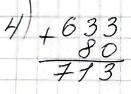 4) + 633
80
713